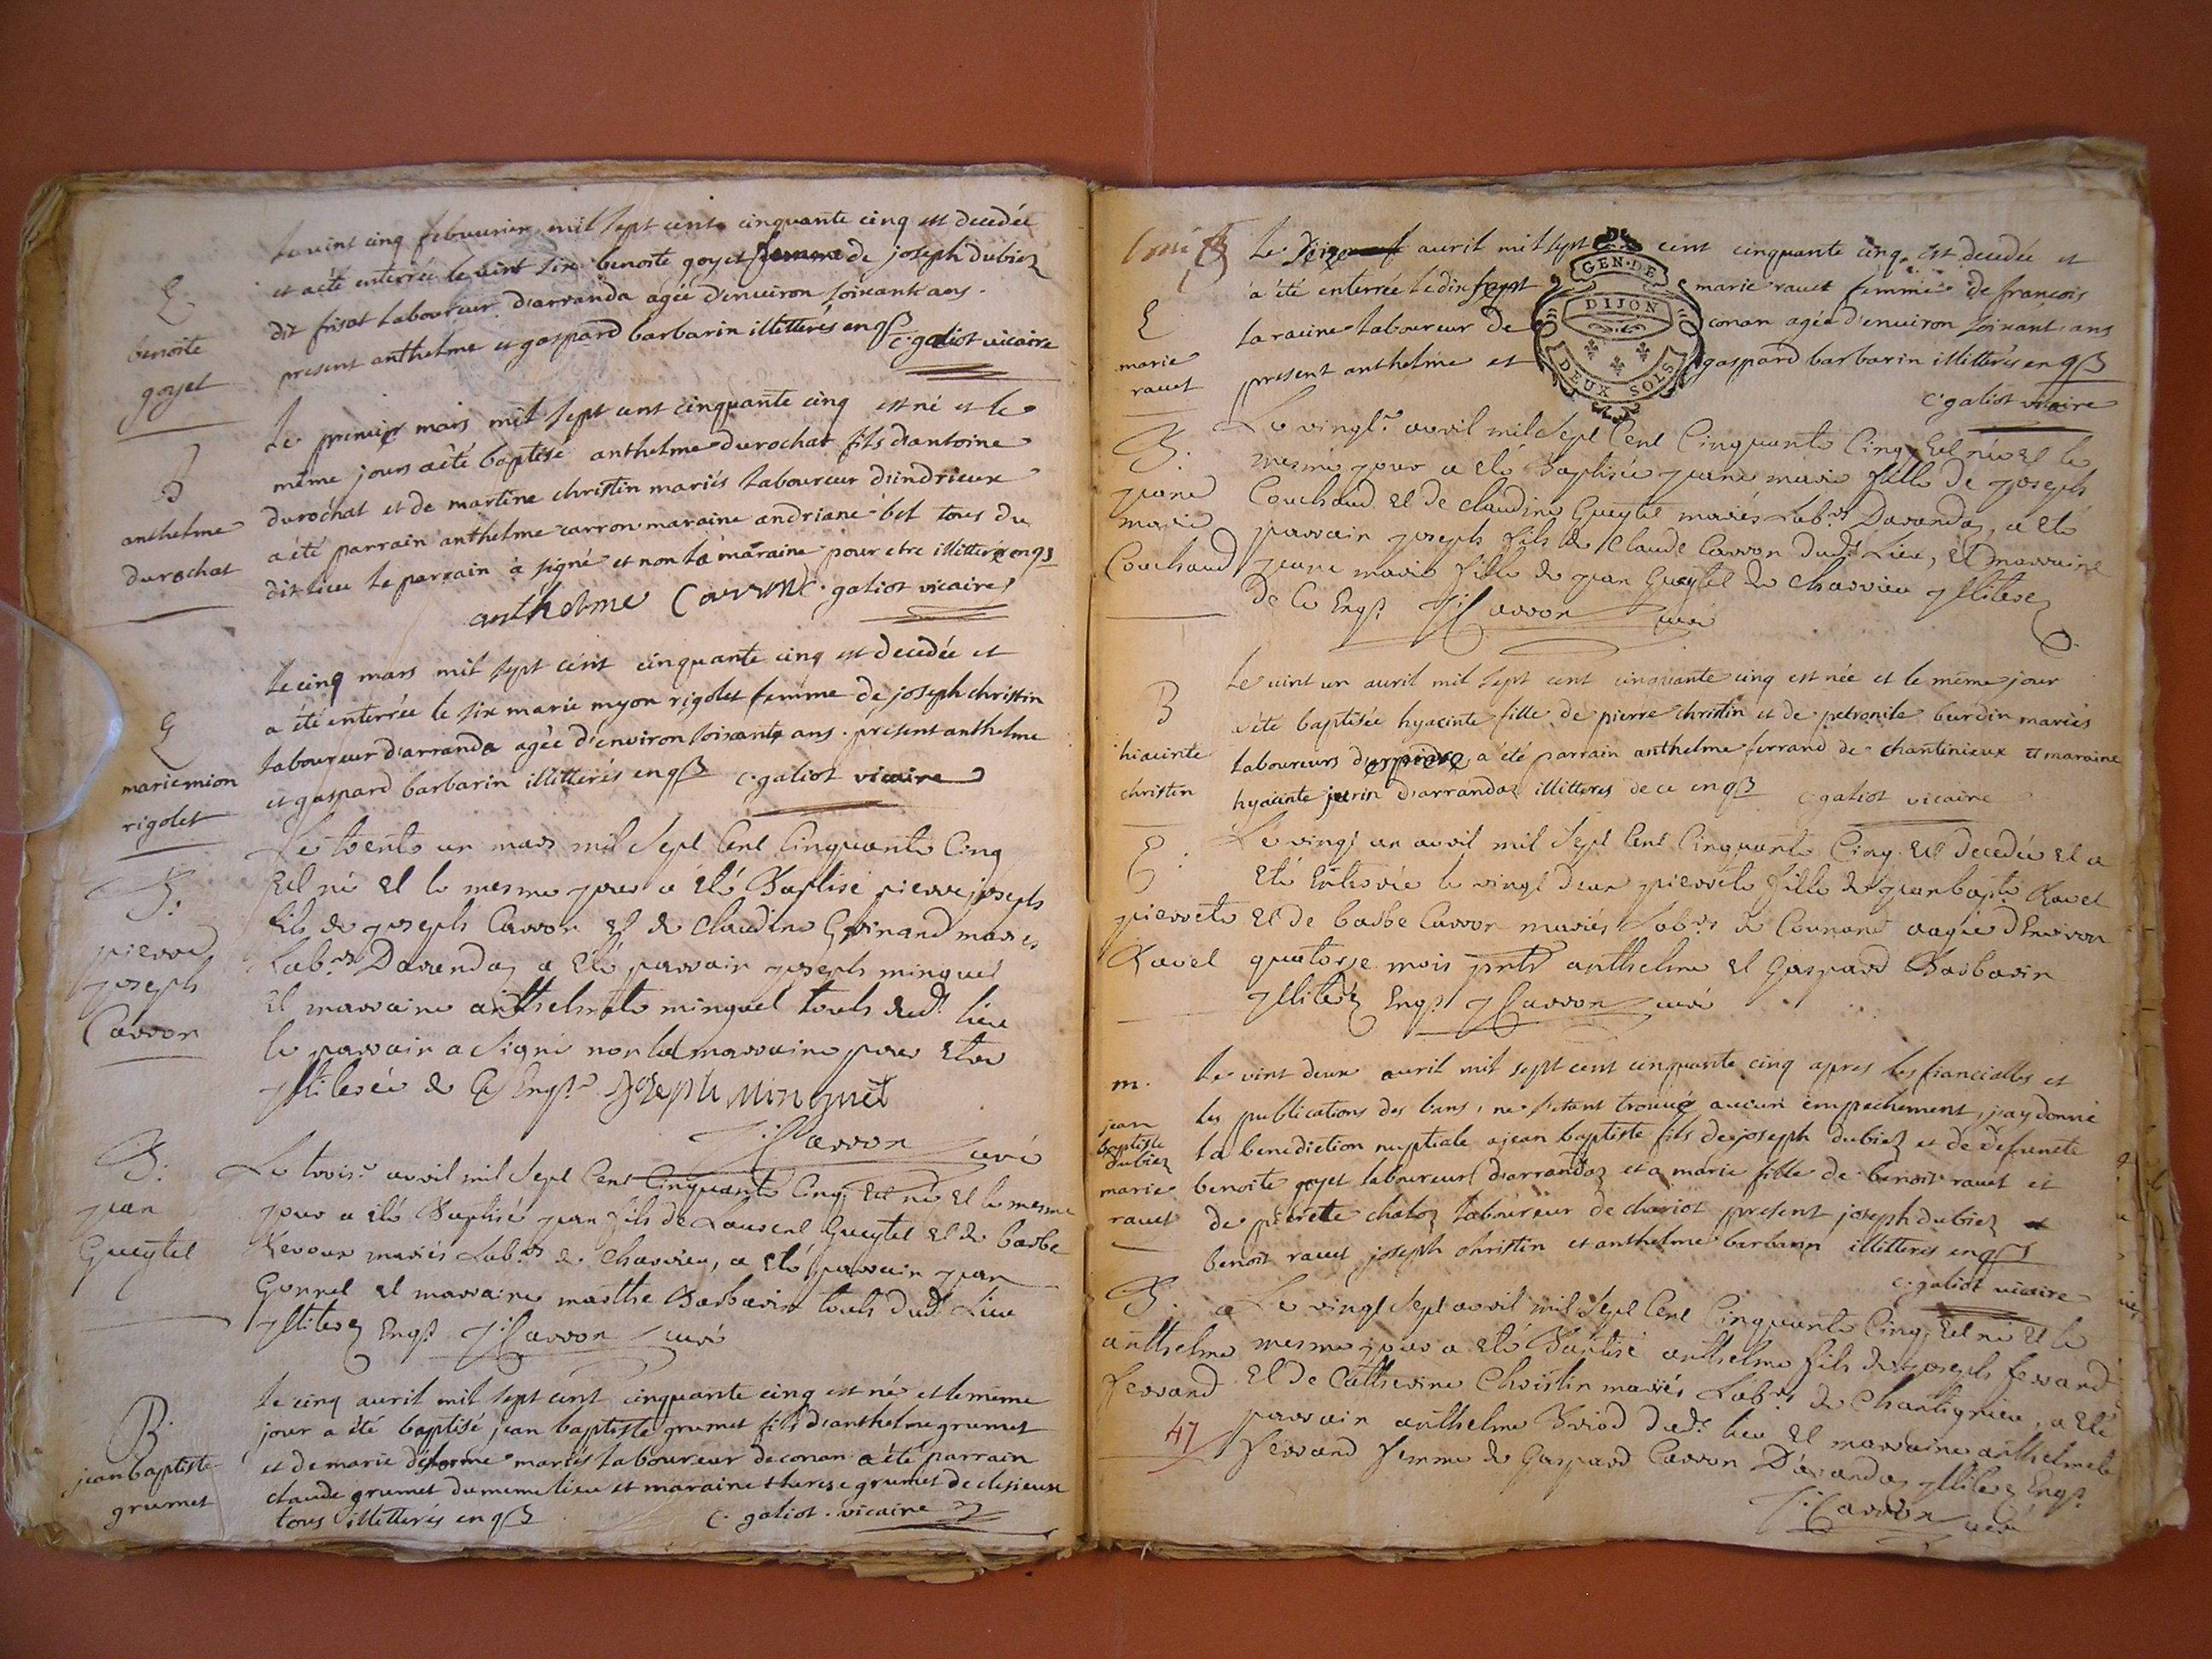 Le vint cinq febvurier mil sept cent cinquante cinq est decedée
et a été enterrée le vint six benoite goyet femme de joseph dubiez
E
dit frisat laboureur d'arranda agée d'environ soixante ans.
benoite
present anthelme et gaspard barbarin illitterés enqß c. galiot vicaire
goyet
Le premier mars mil sept cent cinquante cinq est né et le
B
même jours a été baptisé anthelme durochat fils d'antoine
durochat et de martine christin mariés laboureur d'indrieux
anthelme
a été parrain anthelme carron maraine andriane bel tous du
durochat
dit lieu le parrain a signé et non la maraine pour etre illitterée enqs
anthelme Carron c. galiot vicaire
Le cinq mars mil sept cent cinquante cinq est decedée et
E
a été enterrée le six marie myon rigolet femme de joseph christin
mariemion
laboureur d'arranda agée d'environ soixante ans. présent anthelme
rigolet
et gaspard barbarin illitterés enqß c. galiot vicaire
Le trente un mars mil Sept Cent Cinquante Cinq
B.
Est né et le mesme jour a eté Baptisé pierre joseph
pierre
fils de joseph Carron et de Claudine Guinand mariés
joseph
Lab.rs Darandaz a eté parrain joseph minguet
Carron
et marraine anthelmete minguet touts dud. lieu
le parrain a signé non la marraine pour etre
ylliterée de ce Enqs. Joseph Minguet
J: Carron curé
B.
Le trois.e avril mil Sept Cent Cinquante Cinq Est né et le mesme
jean
jour a eté Baptisé jean fils de Laurent Gueytet et de barbe
Gueytet
Revoux mariés Lab.rs de Charvieu, a eté parrain jean
Gonnet et marraine marthe Barbarin touts dud. Lieu
ylliterez Enqs. J: Carron curé
Le cinq auril mil sept cent cinquante cinq est né et le même
B.
jour a été baptisé jean baptiste grumet fils d'anthelme grumet
jean baptiste
et de marie delorme mariés laboureur de conan a été parrain
grumet
claude grumet du meme lieu et maraine therese grumet de clesieux
tous illitterés enqß c. galiot. vicaire
Le seize auril mil sept cent cinquante cinq est decedée et
a été enterrée le dix sept marie rauet femme de francois
GEN. DE DIJON
DEUX SOLS
E
laracine laboureur de conan agée d'environ soixante ans
marie
rauet
present anthelme et gaspard barbarin illitterés enqß
c. galiot vicaire
Le vingt.e avril mil Sept Cent Cinquante Cinq Est née et le
B.
mesme jour a eté Baptisée jeane marie fille de joseph
jeane
Couchaud et de claudine Gueytet mariés Lab.rs Darandaz, a eté
marie
parrain joseph fils de Claude Carron dud. Lieu, et marraine
Couchaud
jeane marie fille de jean Gueytet de Charvieu ylliterez
De Ce Enqs. J: Carron curé
Le vint un auril mil sept cent cinquante cinq est née et le même jour
B
a été baptisée hyacinte fille de pierre christin et de petronile burdin mariés
hiacinte
laboureurs a été parrain anthelme ferrand de chantinieux et maraine
christin
hyacinte juvin d'arrandaz illitteres de ce enqß c. galiot vicaire
E.
Le vingt un avril mil Sept Cent Cinquante Cinq Est decedée et a
Eté Enterrée le vingt deux pierrete fille de jean bapte. Ravet
pierrete
et de barbe Carron mariés Lab.rs de Counand aagée dEnviron
Ravet
quatorze mois pnts anthelme et Gaspard Barbarin
ylliterez Enqs. J: Carron curé
m.
Le vint deux auril mil sept cent cinquante cinq apres les fiancialles et
les publications des bans, ne s'etant trouué aucun empechement, j'ay donné
jean
baptiste
dubiez
la benediction nuptiale a jean baptiste fils de joseph dubiez et de defuncte
marie
benoite goyet laboureurs d'arrandaz et a marie fille de benoit rauet et
rauet
de pierrette chaloz laboureur de chariot present joseph dubiez
benoit rauet joseph christin et anthelme barbarin illitteres enqß
c. galiot vicaire
B.
Le vingt Sept avril mil Sept Cent Cinquante Cinq Est né et le
anthelme
mesme jour a eté Baptisé anthelme fils de joseph ferrand
ferrand
et de Catherine Christin mariés Lab.rs de Chantignieu, a eté
47
parrain anthelme Briod dud. lieu et marraine anthelmete
ferrand femme de Gaspard Carron Darandaz ylliterez Enqs.
J: Carron curé